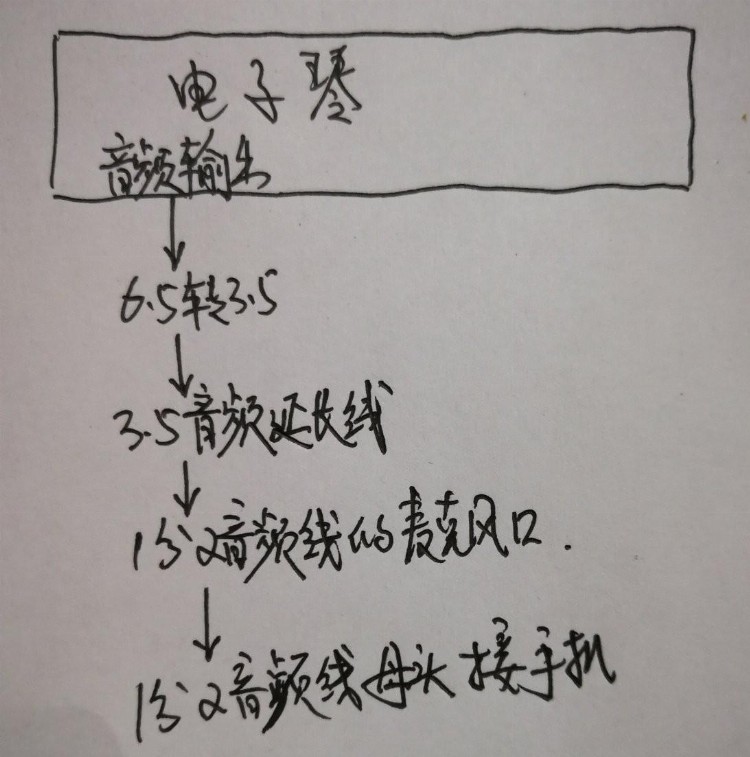 电子琴
音频输出
6.5转3.5
3.5音频延长线
1分2音频线的麦克风口.
1分2音频线母头接手机